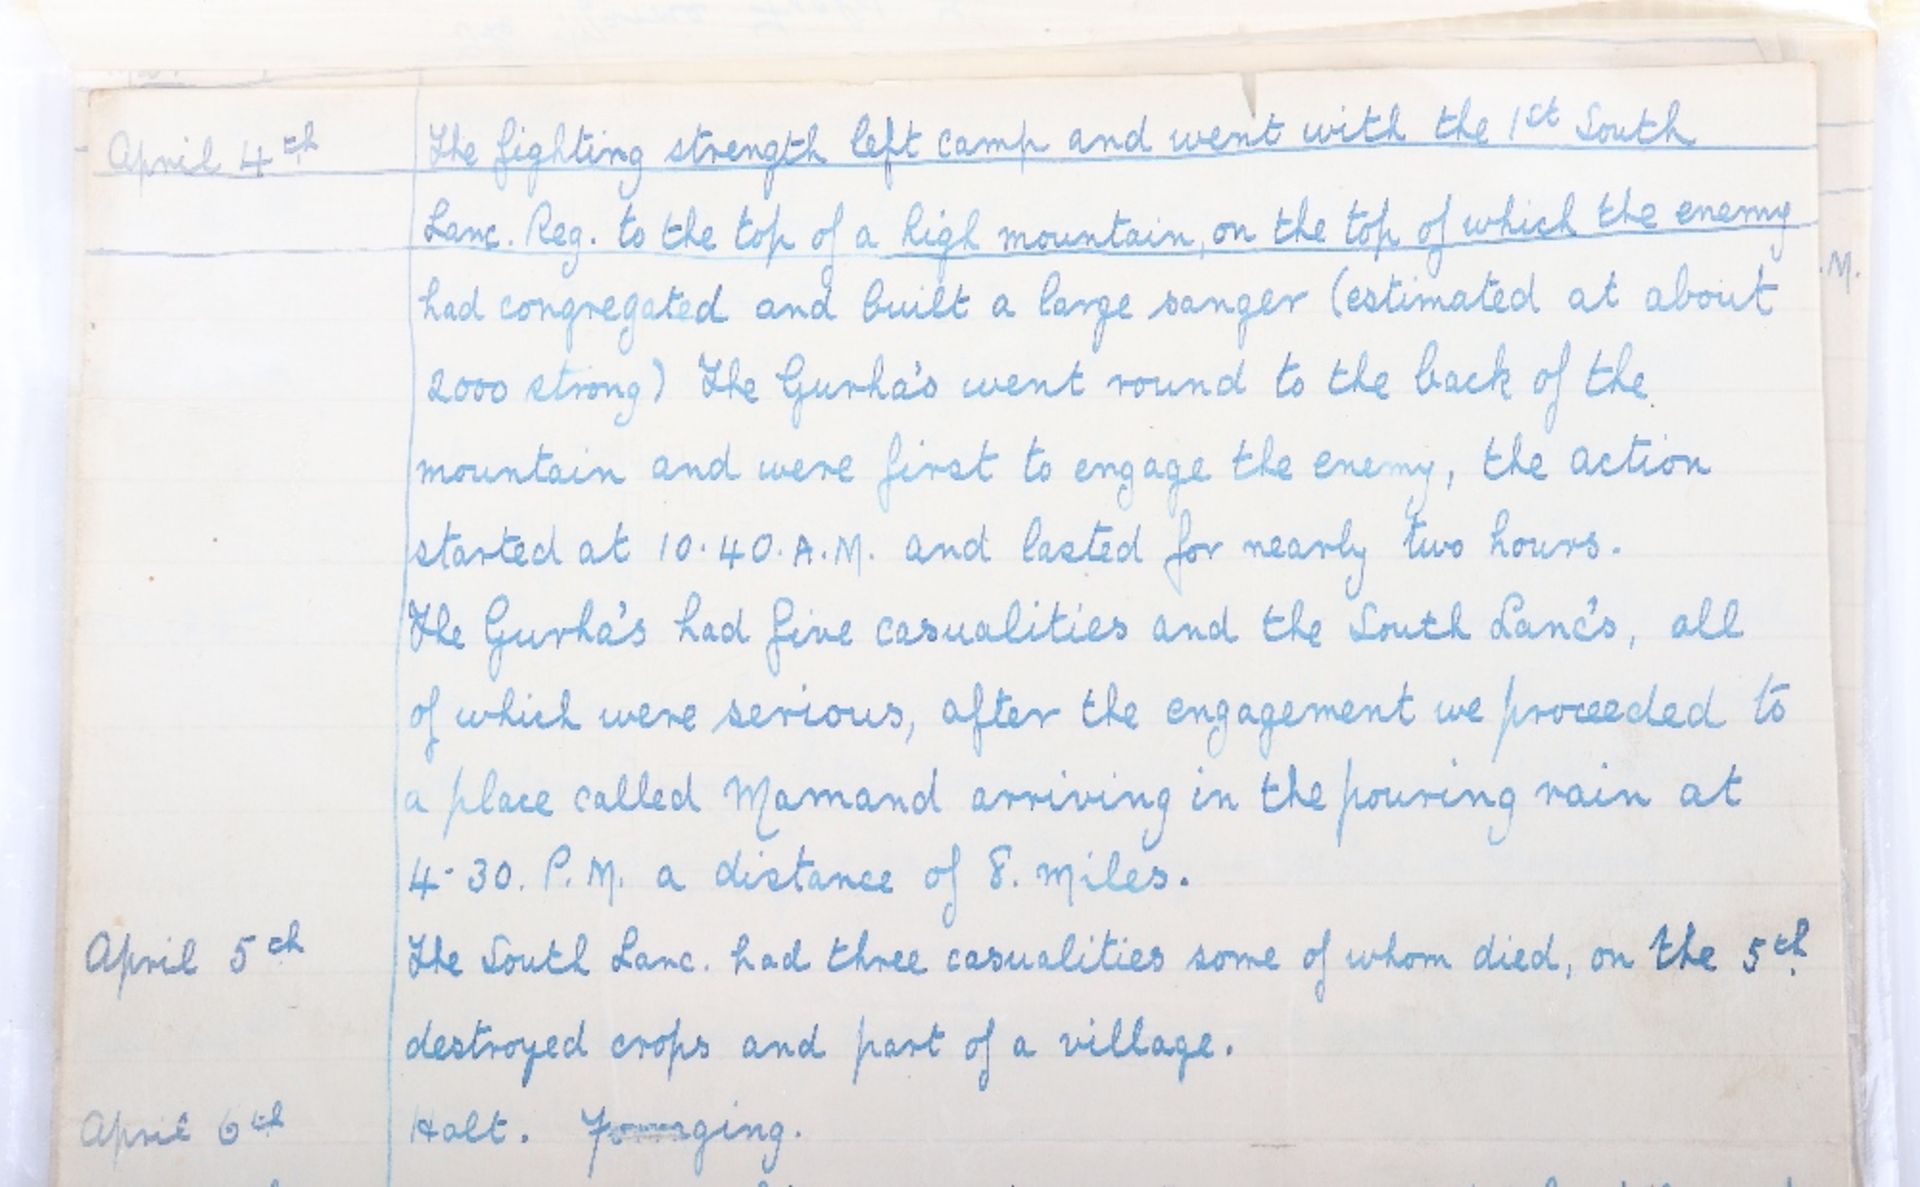 April 4th The fighting strength left camp and went with the 1st South
Lanc. Reg. to the top of a high mountain, on the top of which the enemy
had congregated and built a large sanger (estimated at about
2000 strong) The Gurha's went round to the back of the
mountain and were first to engage the enemy, the action
started at 10.40.A.M. and lasted for nearly two hours.
The Gurha's had five casualities and the South Lanc's, all
of which were serious, after the engagement we proceeded to
a place called Mamand arriving in the pouring rain at
4-30. P.M. a distance of 8. miles.
April 5th The South Lanc. had three casualities some of whom died, on the 5th
destroyed crops and part of a village.
April 6th Halt. Foraging.
.M.